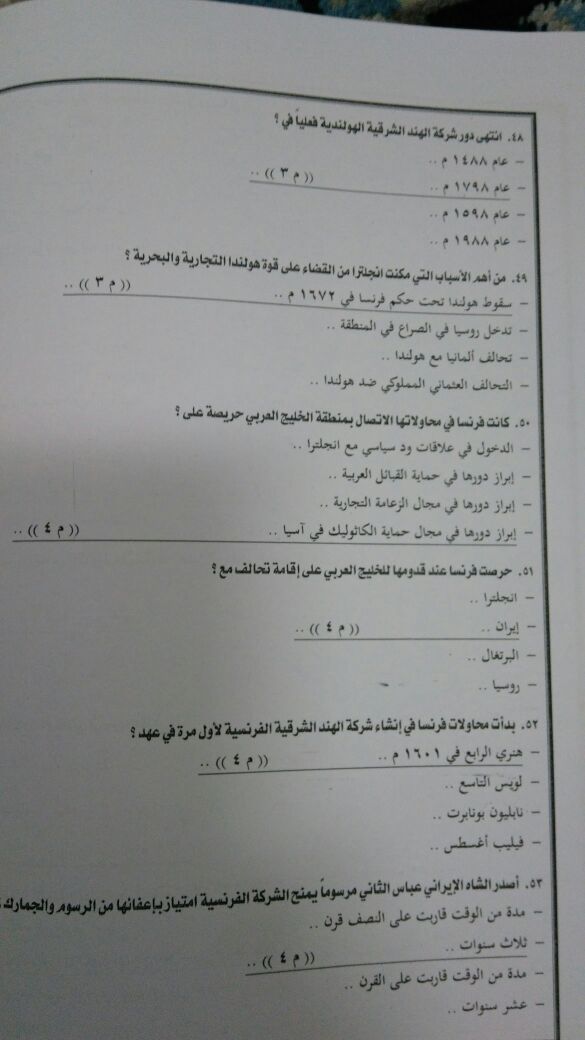 ٤٨. انتهى دور شركة الهند الشرقية الهولندية فعلياً في ؟
– عام ١٤٨٨ م ..
– عام ١٧٩٨ م .. (( م ٣ )) ..
– عام ١٥٩٨ م ..
– عام ١٩٨٨ م ..
٤٩. من أهم الأسباب التي مكنت انجلترا من القضاء على قوة هولندا التجارية والبحرية ؟
– سقوط هولندا تحت حكم فرنسا في ١٦٧٢ م .. (( م ٣ )) ..
– تدخل روسيا في الصراع في المنطقة ..
– تحالف ألمانيا مع هولندا ..
– التحالف العثماني المملوكي ضد هولندا ..
٥٠. كانت فرنسا في محاولاتها الاتصال بمنطقة الخليج العربي حريصة على ؟
– الدخول في علاقات ود سياسي مع انجلترا ..
– إبراز دورها في حماية القبائل العربية ..
– إبراز دورها في مجال الزعامة التجارية ..
– إبراز دورها في مجال حماية الكاثوليك في آسيا .. (( م ٤ )) ..
٥١. حرصت فرنسا عند قدومها للخليج العربي على إقامة تحالف مع ؟
– انجلترا ..
– إيران .. (( م ٤ )) ..
– البرتغال ..
– روسيا ..
٥٢. بدأت محاولات فرنسا في إنشاء شركة الهند الشرقية الفرنسية لأول مرة في عهد ؟
– هنري الرابع في ١٦٠١ م .. (( م ٤ )) ..
– لويس التاسع ..
– نابليون بونابرت ..
– فيليب أغسطس ..
٥٣. أصدر الشاه الإيراني عباس الثاني مرسوماً يمنح الشركة الفرنسية امتياز بإعفائها من الرسوم والجمارك
– مدة من الوقت قاربت على النصف قرن ..
– ثلاث سنوات .. (( م ٤ )) ..
– مدة من الوقت قاربت على القرن ..
– عشر سنوات ..